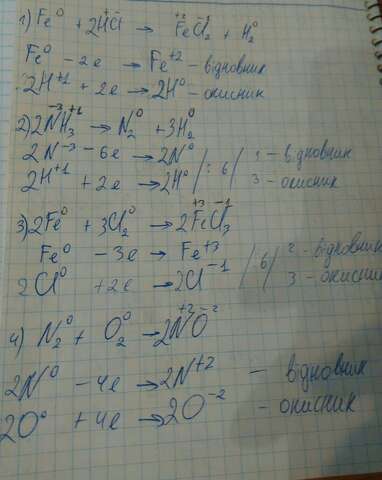 1) Fe⁰ + 2H⁺Cl⁻ → Fe⁺²Cl₂⁻¹ + H₂⁰
Fe⁰ - 2e → Fe⁺² - відновник
2H⁺¹ + 2e → 2H⁰ - окисник
2) 2N⁻³H₃⁺¹ → N₂⁰ + 3H₂⁰
2N⁻³ - 6e → 2N⁰ | : 6 | 1 - відновник
2H⁺¹ + 2e → 2H⁰ 3 - окисник
3) 2Fe⁰ + 3Cl₂⁰ → 2Fe⁺³Cl₃⁻¹
Fe⁰ - 3e → Fe⁺³ | 6 | 2 - відновник
2Cl⁰ + 2e → 2Cl⁻¹ 3 - окисник
4) N₂⁰ + O₂⁰ → 2N⁺²O⁻²
2N⁰ - 4e → 2N⁺² - відновник
2O⁰ + 4e → 2O⁻² - окисник